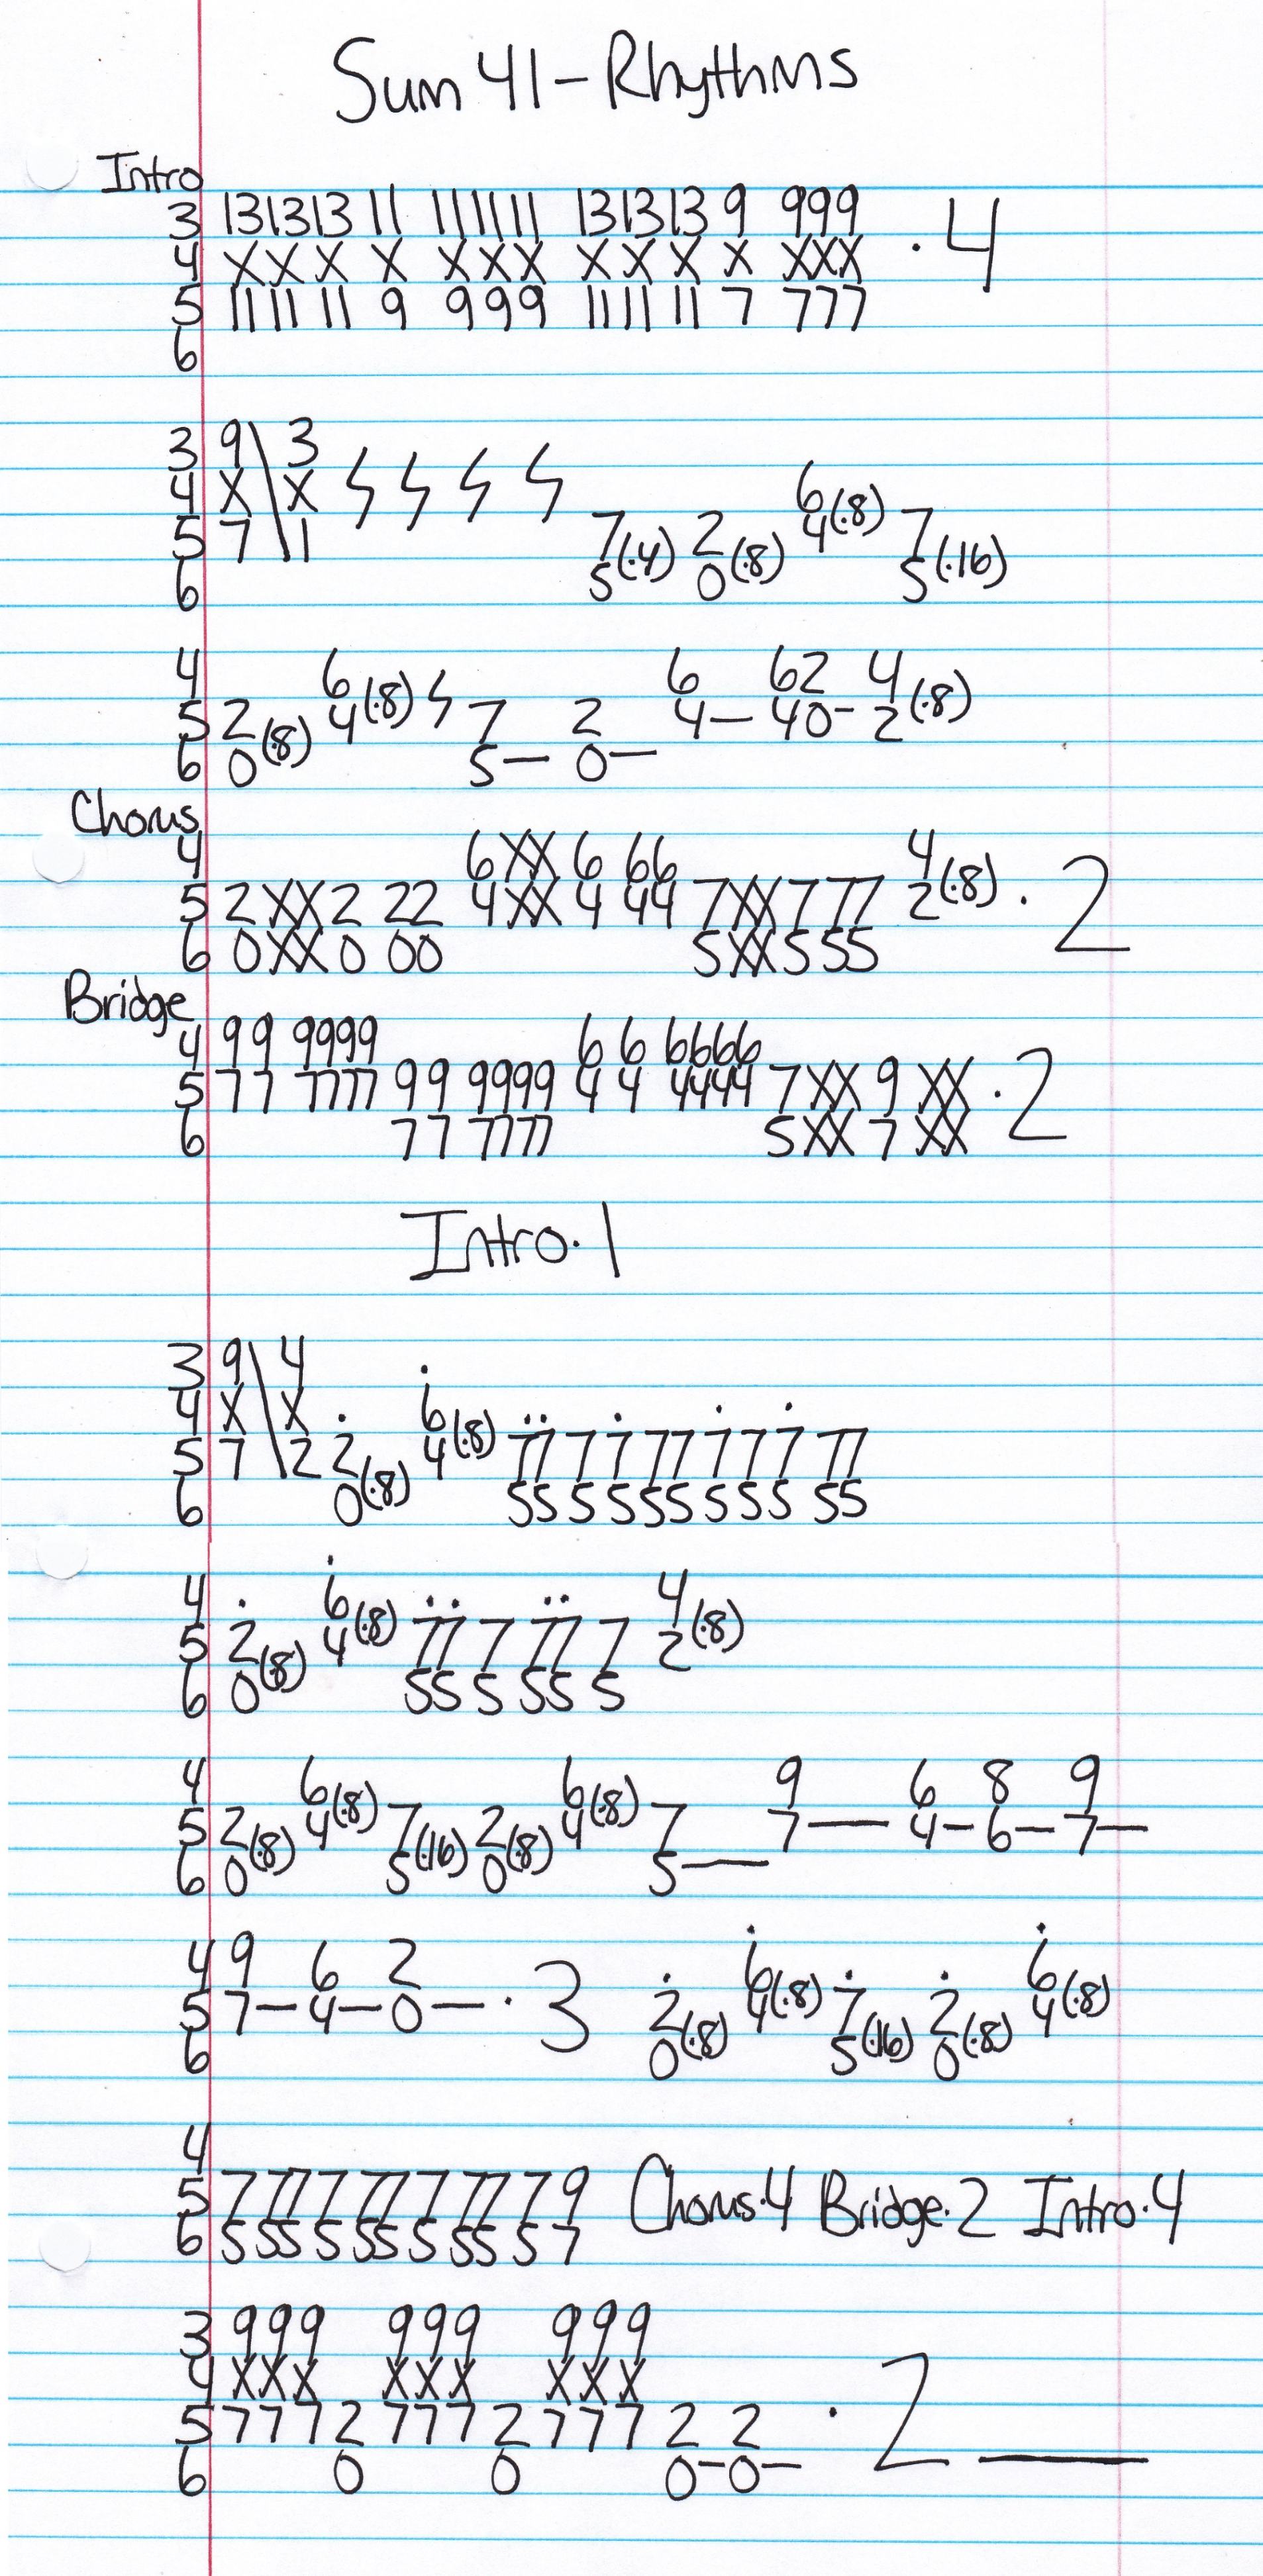 Sum 41 - Rhythms
Intro
3 13 13 13 11 11 11 11 13 13 13 9 999 · 4
4 X X X X X X X X X X X XXX
5 11 11 11 9 9 9 9 11 11 11 7 777
6
3 9 \ 3
4 X \ X 6
5 7 \ 1 7 (·4) 2 (·8) 4 (·8) 7
6 5 0 5 (·16)
4 6 6 62 4
5 2 (·8) 4 (·8) 7 2 4 — 40 - 2 (·8)
6 0 5 — 0 —
Chorus
4 6 XX 6 66 4
5 2 XX 2 22 4 XX 4 44 7 XX 7 77 2 (·8) · 2
6 0 XX 0 00 5 XX 5 55
Bridge
4 9 9 9999 6 6 6666
5 7 7 7777 9 9 9999 4 4 4444 7 XX 9 XX · 2
6 7 7 7777 5 XX 7 XX
Intro · 1
3 9 \ 4
4 X \ X 6
5 7 \ 2 2 (·8) 4 (·8) 77 7 7 77 7 7 7 77
6 0 55 5 5 55 5 5 5 55
4 6 4
5 2 (·8) 4 (·8) 77 7 77 7 2 (·8)
6 0 55 5 55 5
4 6 6 9 6 8 9
5 2 (·8) 4 (·8) 7 (·16) 2 (·8) 4 (·8) 7 7 — 4 - 6 - 7 -
6 0 5 0 5 —
4 9 6 2 6 6
5 7 - 4 - 0 - · 3 2 (·8) 4 (·8) 7 (·16) 2 (·8) 4 (·8)
6 0 5 0
4
5 7 77 7 77 7 77 7 9 Chorus · 4 Bridge · 2 Intro · 4
6 5 55 5 55 5 55 5 7
3 999 999 999
4 XXX XXX XXX
5 777 2 777 2 777 2 2 · 2
6 0 0 0 - 0 -